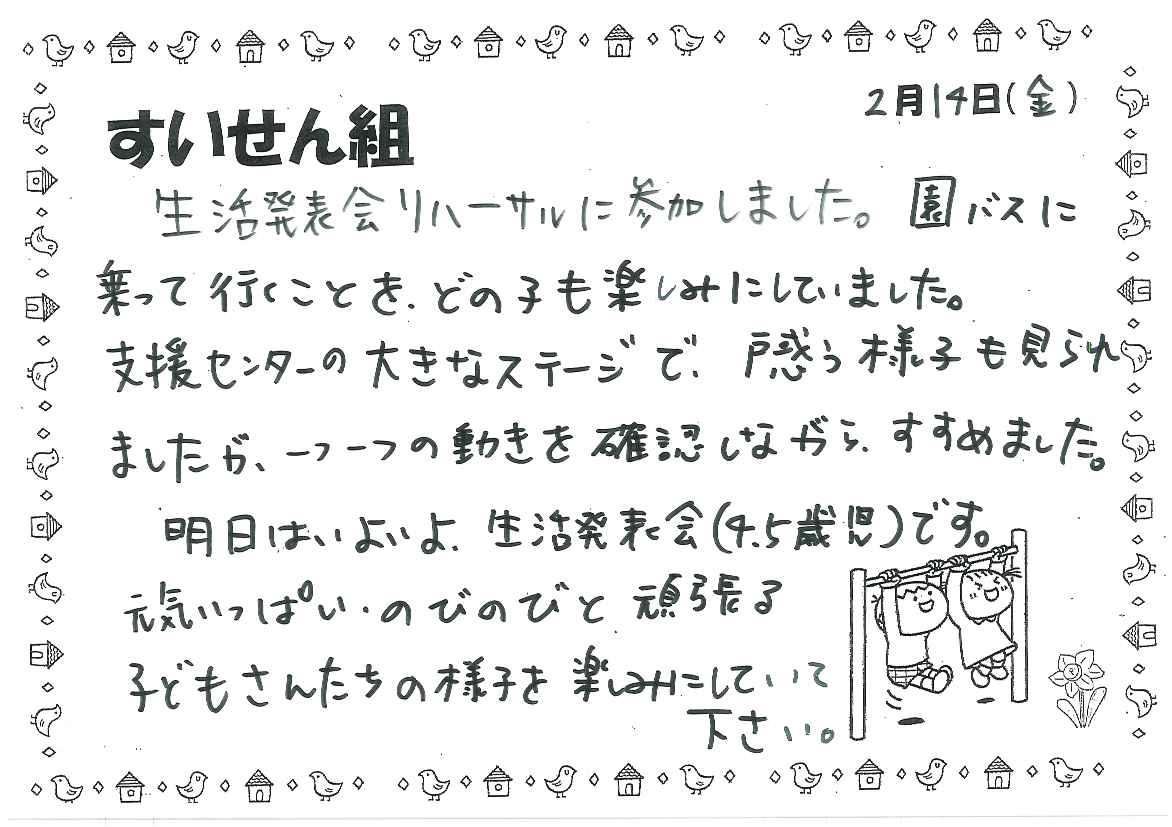 2月14日(金)
すいせん組
生活発表会リハーサルに参加しました。園バスに
乗って行くことを、どの子も楽しみにしていました。
支援センターの大きなステージで、戸惑う様子も見られ
ましたが、一つ一つの動きを確認しながら、すすめました。
明日はいよいよ、生活発表会(4.5歳児)です。
元気いっぱい・のびのびと頑張る
子どもさんたちの様子を楽しみにしていて
下さい。